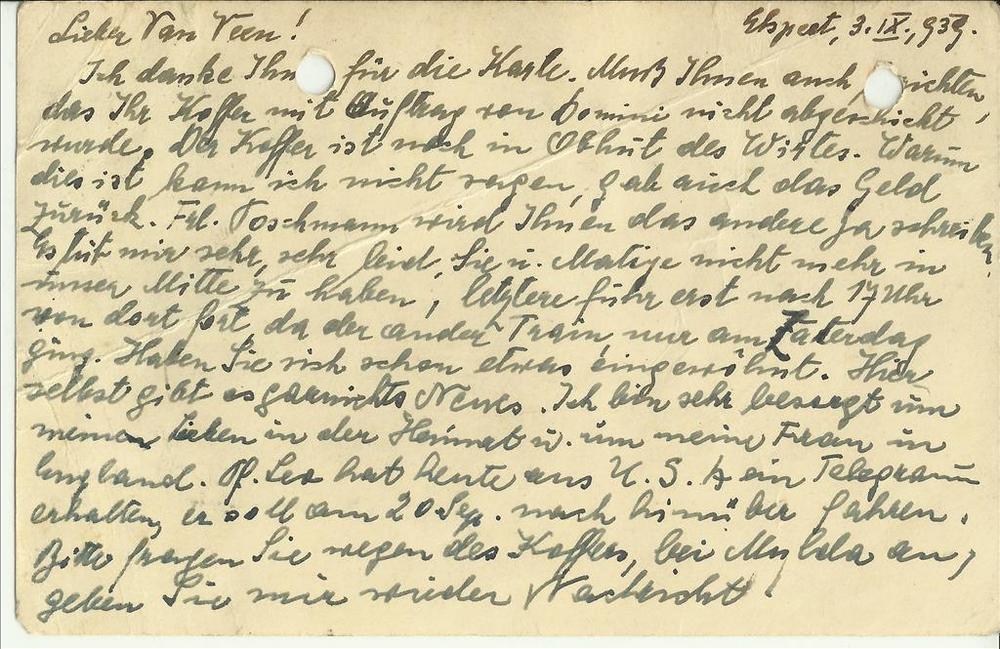 Lieber Van Veen!
Elspeet, 3.IX.,939.
Ich danke Ihn für die Karte. Muß Ihnen auch richten,
das Ihr Koffer mit Auftrag von Domini nicht abgeschickt
wurde. Der Koffer ist noch in Obhut des Wirtes. Warum
dies ist, kann ich nicht sagen, gab auch das Geld
zurück. Frl. Toschmann wird Ihnen das andere ja schreiben.
Es tut mir sehr, sehr leid, Sie u. nicht mehr in
unser Mitte zu haben, letztere fuhr erst nach 17 Uhr
von dort fort, da der ander Train, nur am Zaterdag
ging. Haben Sie sich schon etwas eingewöhnt. Hier
selbst gibt es garnichts Neues. Ich bin sehr besorgt um
meine Lieben in der Heimat u. um meine Frau in
England. Leo hat heute aus U.S.A ein Telegramm
erhalten, er soll am 20 Sep. nach hinüber fahren.
Bitte fragen Sie wegen des Koffers, bei an,
geben Sie mir wieder Nachricht!